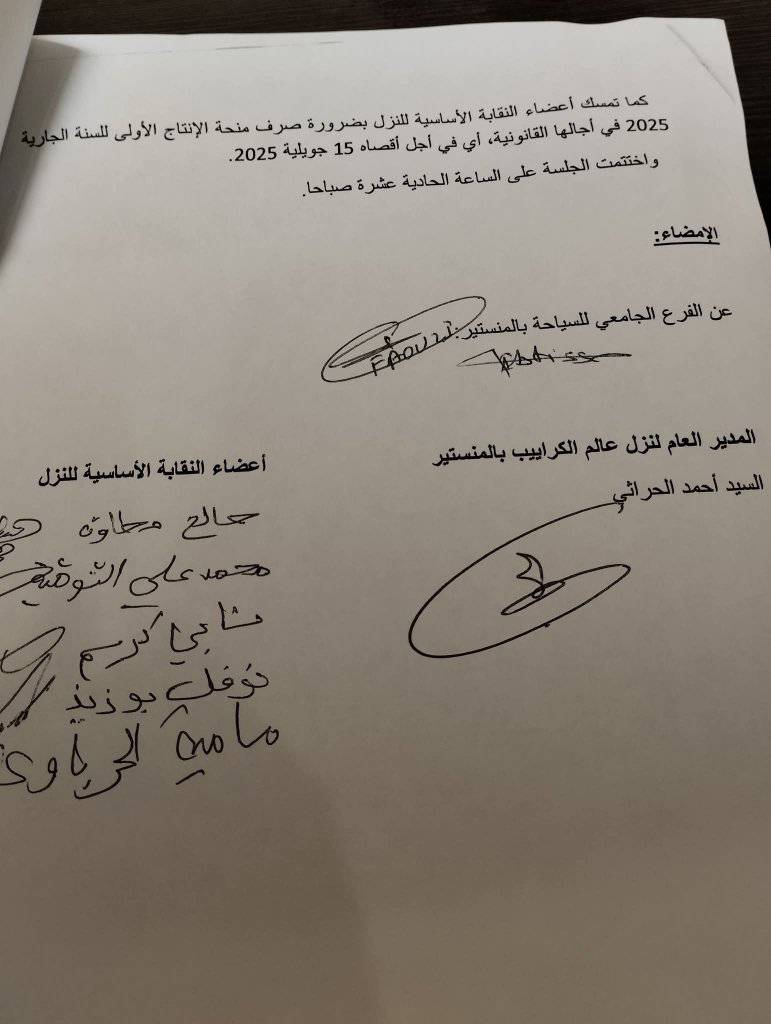 كما تمسك أعضاء النقابة الأساسية للنزل بضرورة صرف منحة الإنتاج الأولى للسنة الجارية
2025 في أجالها القانونية، أي في أجل أقصاه 15 جويلية 2025.
واختتمت الجلسة على الساعة الحادية عشرة صباحا.
الإمضاء:
عن الفرع الجامعي للسياحة بالمنستير:
FAOUZI
المدير العام لنزل عالم الكراييب بالمنستير
السيد أحمد الحراثي
أعضاء النقابة الأساسية للنزل
صالح
محمد علي
كريم
نوفل بوزيد